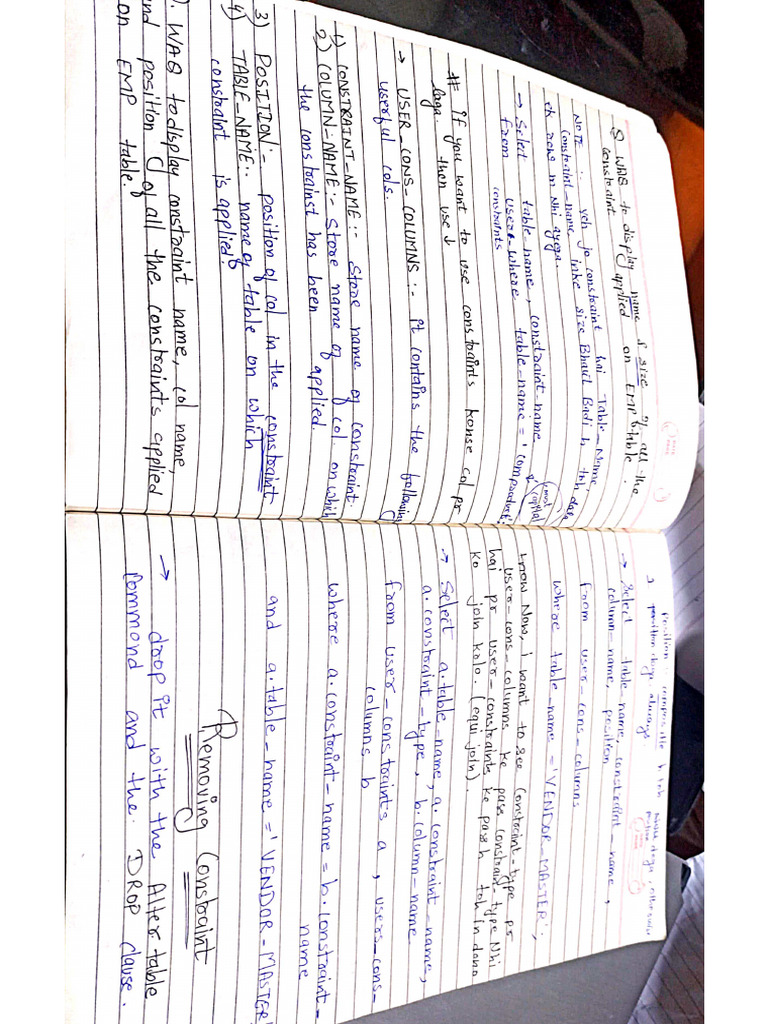 Q WAQ to display name & size of all the
constraint applied on EMP table.
NOTE :- yeh jo constraint hai Table-Name,
Constraint-name inke size Bhaut Badi h toh
ek row m Nhi ayega.
→ Select table-name, constraint-name
from user- where table-name = '
constraints
must
capital
# if you want to use constraints konse col pr
laga. then use ↓
→ USER_CONS_COLUMNS :- it contains the following
userful cols.
1) CONSTRAINT-NAME :- Store name of constraint.
2) COLUMN-NAME :- Store name of col. on which
the constraint has been applied.
3) POSITION :- position of col in the constraint
4) TABLE_NAME :- name of table on which
constraint is applied.
WAQ to display constraint name, col name,
and position of all the constraints applied
on EMP table.
Position :- h toh dega, otherwise
position dega always.
→ Select table-name, constraint-name,
column-name, position
from user-cons-columns
where table-name = 'VENDOR-MASTER';
know Now, i want to see constraint-type pr
user-cons-columns ke pass constraint-type Nhi
hai pr user-constraints ke pass h toh in dono
ko join kolo. (equi join).
→ Select a.table-name, a.constraint-name,
a.constraint-type, b.column-name
from user-constraints a, users-cons-
columns b
where a.constraint-name = b.constraint-
name
and a.table-name = 'VENDOR-MASTER'
Removing Constraint
→ drop it with the Alter table
Commond and the DROP clause.